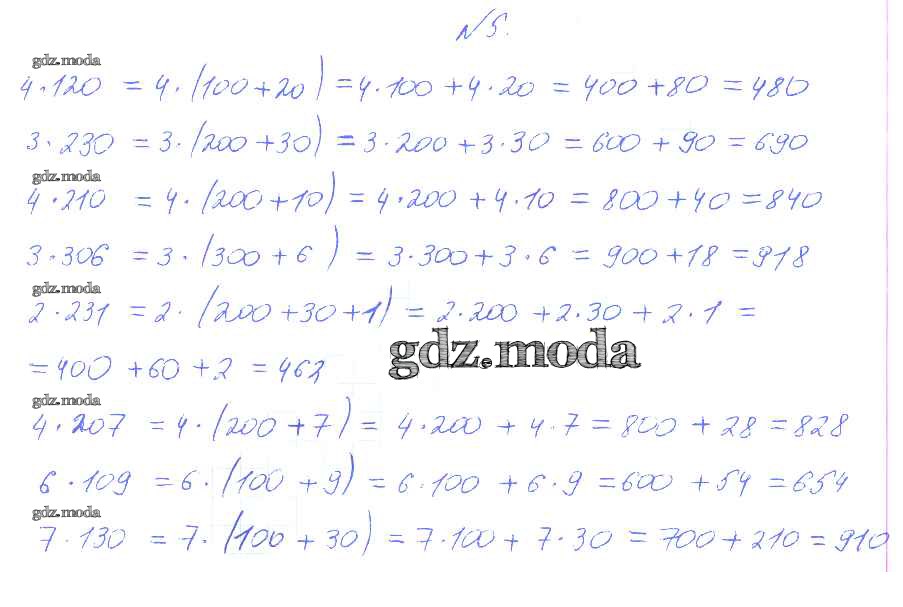 № 5.
gdz.moda
4·120 = 4·(100+20) = 4·100 + 4·20 = 400 + 80 = 480
3·230 = 3·(200+30) = 3·200 + 3·30 = 600 + 90 = 690
gdz.moda
4·210 = 4·(200+10) = 4·200 + 4·10 = 800 + 40 = 840
3·306 = 3·(300 + 6) = 3·300 + 3·6 = 900 + 18 = 918
gdz.moda
2·231 = 2·(200+30+1) = 2·200 + 2·30 + 2·1 =
gdz.moda
= 400 + 60 + 2 = 462
gdz.moda
4·207 = 4·(200 + 7) = 4·200 + 4·7 = 800 + 28 = 828
6·109 = 6·(100 + 9) = 6·100 + 6·9 = 600 + 54 = 654
gdz.moda
7·130 = 7·(100 + 30) = 7·100 + 7·30 = 700 + 210 = 910